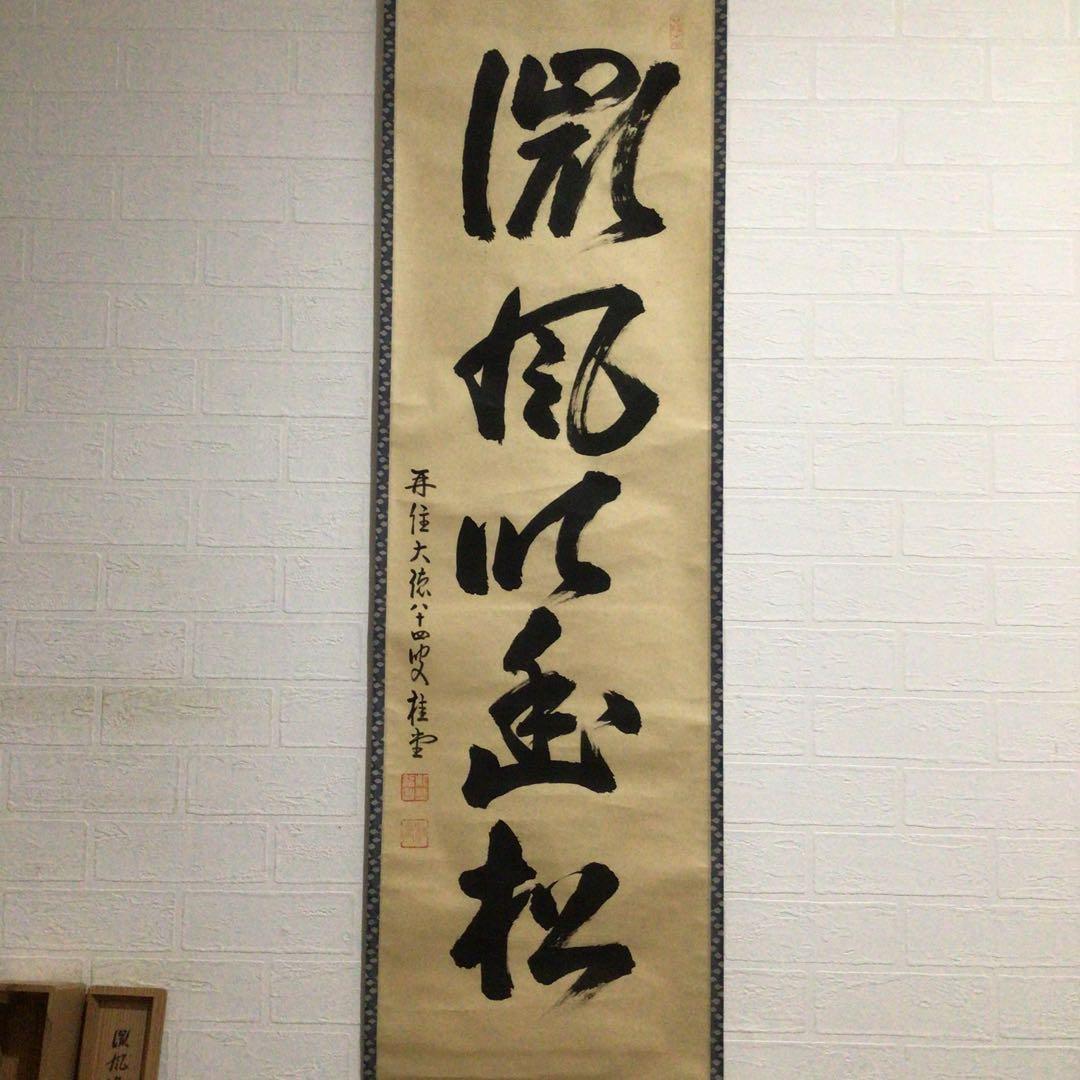 微風吹幽松
再住大徳八十四叟桂堂
微風